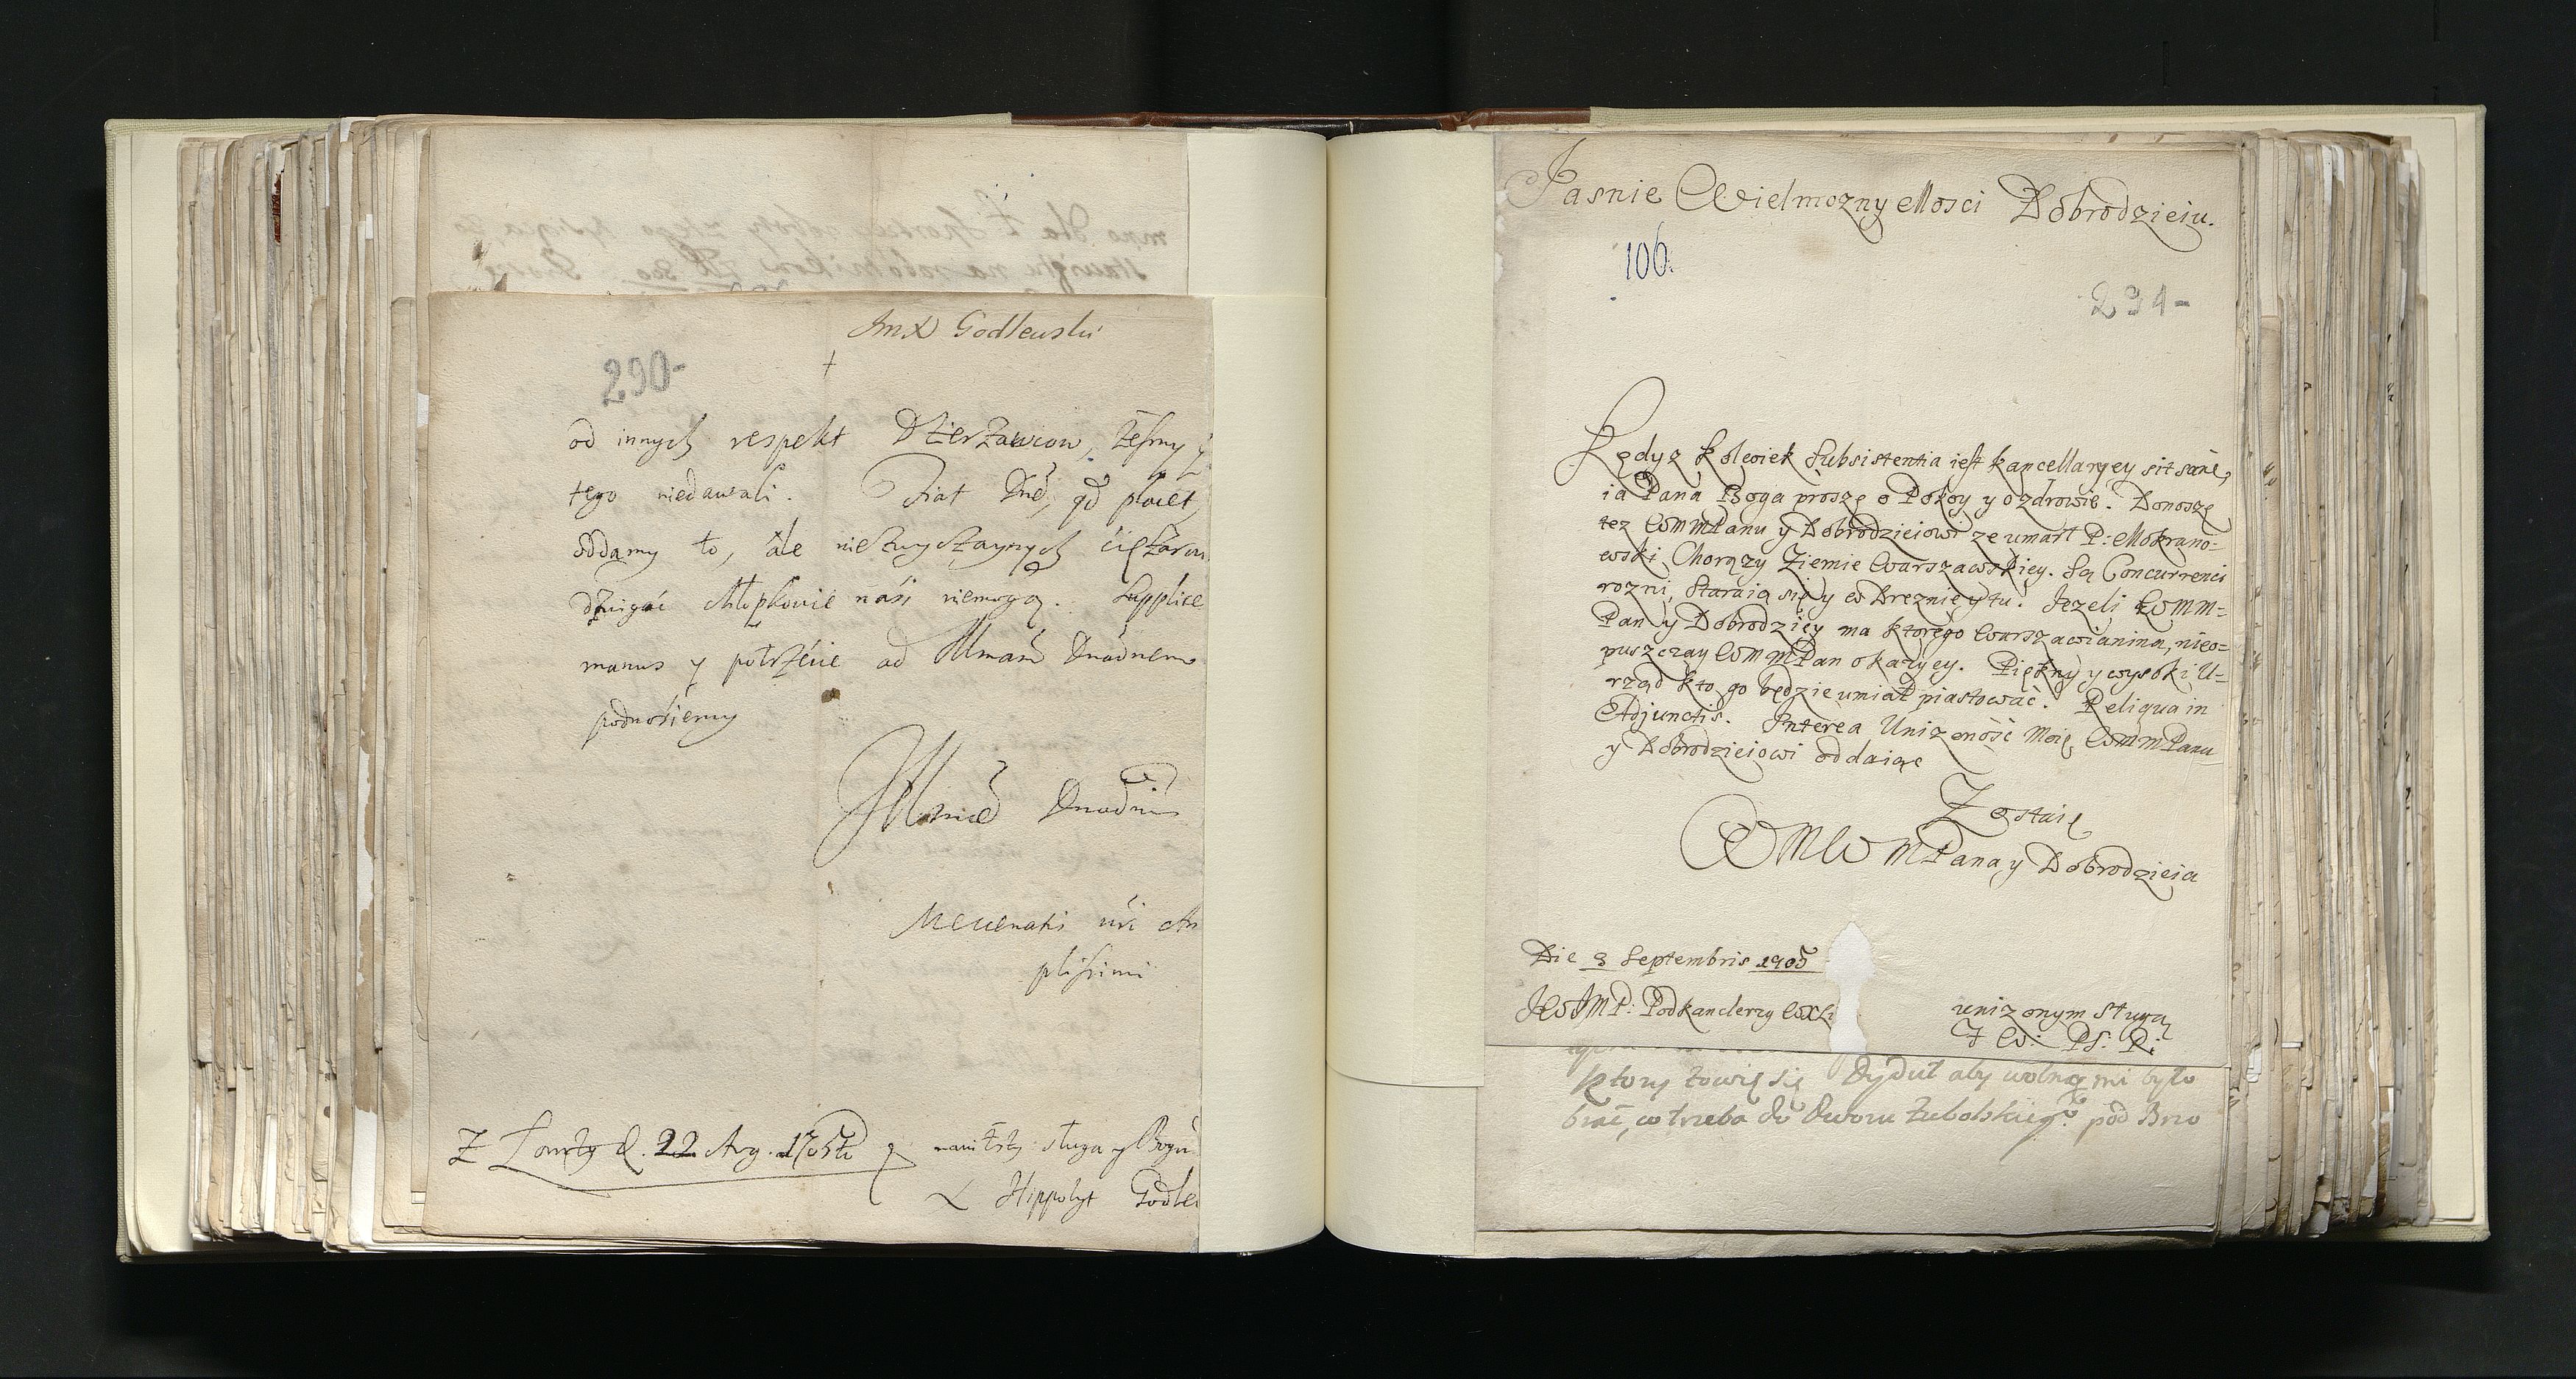 JmX Godlewski
290-
od innych respekt Dzierzawcow, żeśmy
tego niedawali. Fiat Dnē, qđ placet,
oddamy to, ale niezwyczaynych ciężarow
dźwigać chłopkowie nasi niemogą. Supplices
manus y potrzebie ad Illmam
podnosiemy
Mecenatis nri Am
plissimi
Z Łomży d. 22 Aug. 1705to
sługa y Bogu
X Hippolyt Godle
Jasnie Wielmozny Mosci Dobrodzieiu.
106.
291-
Kędyz kolwiek Subsistentia iest kancellaryey sit sane,
ia Pana Boga proszę o Pokoy y o zdrowie. Donoszę
tez WMMPanu y Dobrodzieiowi ze umarł P: Mokrano=
wski Chorązy Ziemie Warszawskiey. Są Concurrenci
rozni, Staraią się y w Greznie y tu. Jezeli WMM=
Pan y Dobrodziey ma ktorego Warszawianina, nieo=
puszczay WMMPan okazyey. Piękny y wysoki U=
rząd kto go będzie umiał piastować. Reliqua in
Adjunctis. Interea Unizoność Moię WMMPanu
y Dobrodzieiowi oddaiąc
Zostaię
WMW MPana y Dobrodzieia
Die 3 Septembris 1705
JWJMP: Podkanclerzy WXLi
unizonym sługą
J W: Ps. P:
ktory łowię się Dyduł aby wolno mi było
brać, co trzeba do Dworu Zubolskiego pod Brzo